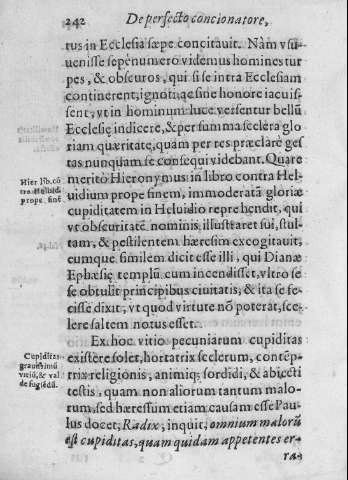 242 De perfecto concionatore,
tus in Ecclesia sæpe concitauit. Nam vsu
uenisse sepenumero videmus homines tur
pes, & obscuros, qui si se intra Ecclesiam
continerent, ignoti, ac sine honore iacuis
sent, vt in hominum luce versentur bellũ
Ecclesię indicere, & per summa scelera glo
riam quæritate, quam per res præclarè ges
tas nunquam se consequi videbant. Quare
Hier. lib. cõ
tra Heluidi
prope finẽ
meritò Hieronymus in libro contra Hel-
uidium prope finem, immoderatã gloriæ
cupiditatem in Heluidio reprehendit, qui
vt obscuritatẽ nominis illustraret sui, stul-
tam, & pestilentem hæresim excogitauit,
eumque similem dicit esse illi, qui Dianæ
Ephæsię templũ cum incendisset, vltro se
se obtulit principibus ciuitatis, & ita se fe-
cisse dixit, vt quod virtute nõ poterat, sce-
lere saltem notus esset.
Cupiditas
grauissimũ
vitiũ, & val
de fugiẽdũ.
Ex hoc vitio pecuniarum cupiditas
existere solet, hortatrix scelerum, contẽp-
trix religionis, animiq; sordidi, & abiecti
testis, quam non aliorum tantum malo-
rum, sed hæresum etiam causam esse Pau-
lus docet, Radix, inquit, omnium malorũ
est cupiditas, quam quidam appetentes er-
ra-